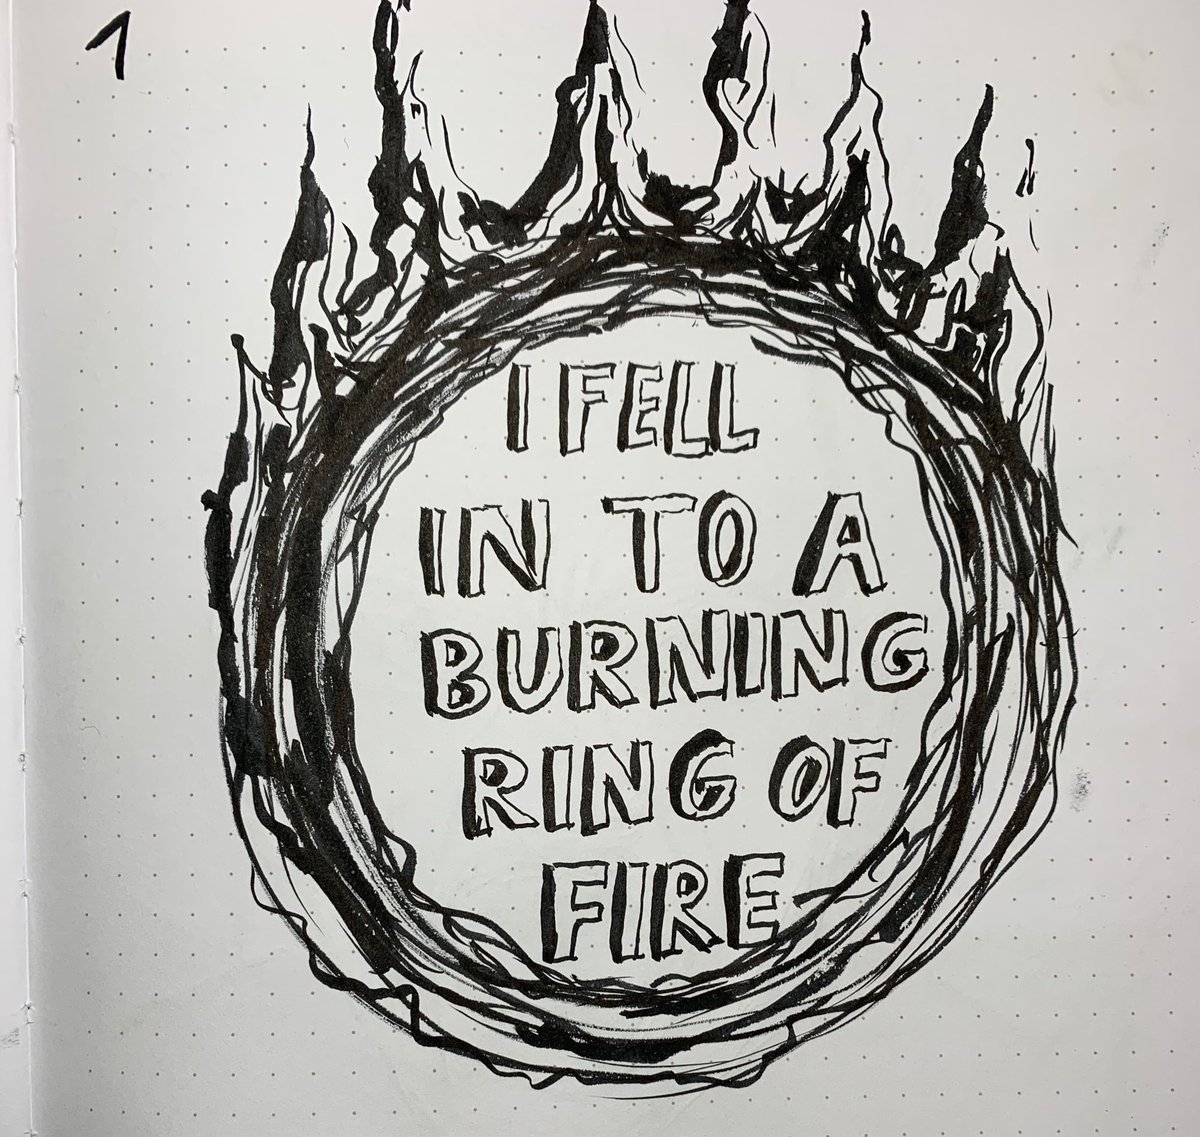 1
I FELL
IN TO A
BURNING
RING OF
FIRE